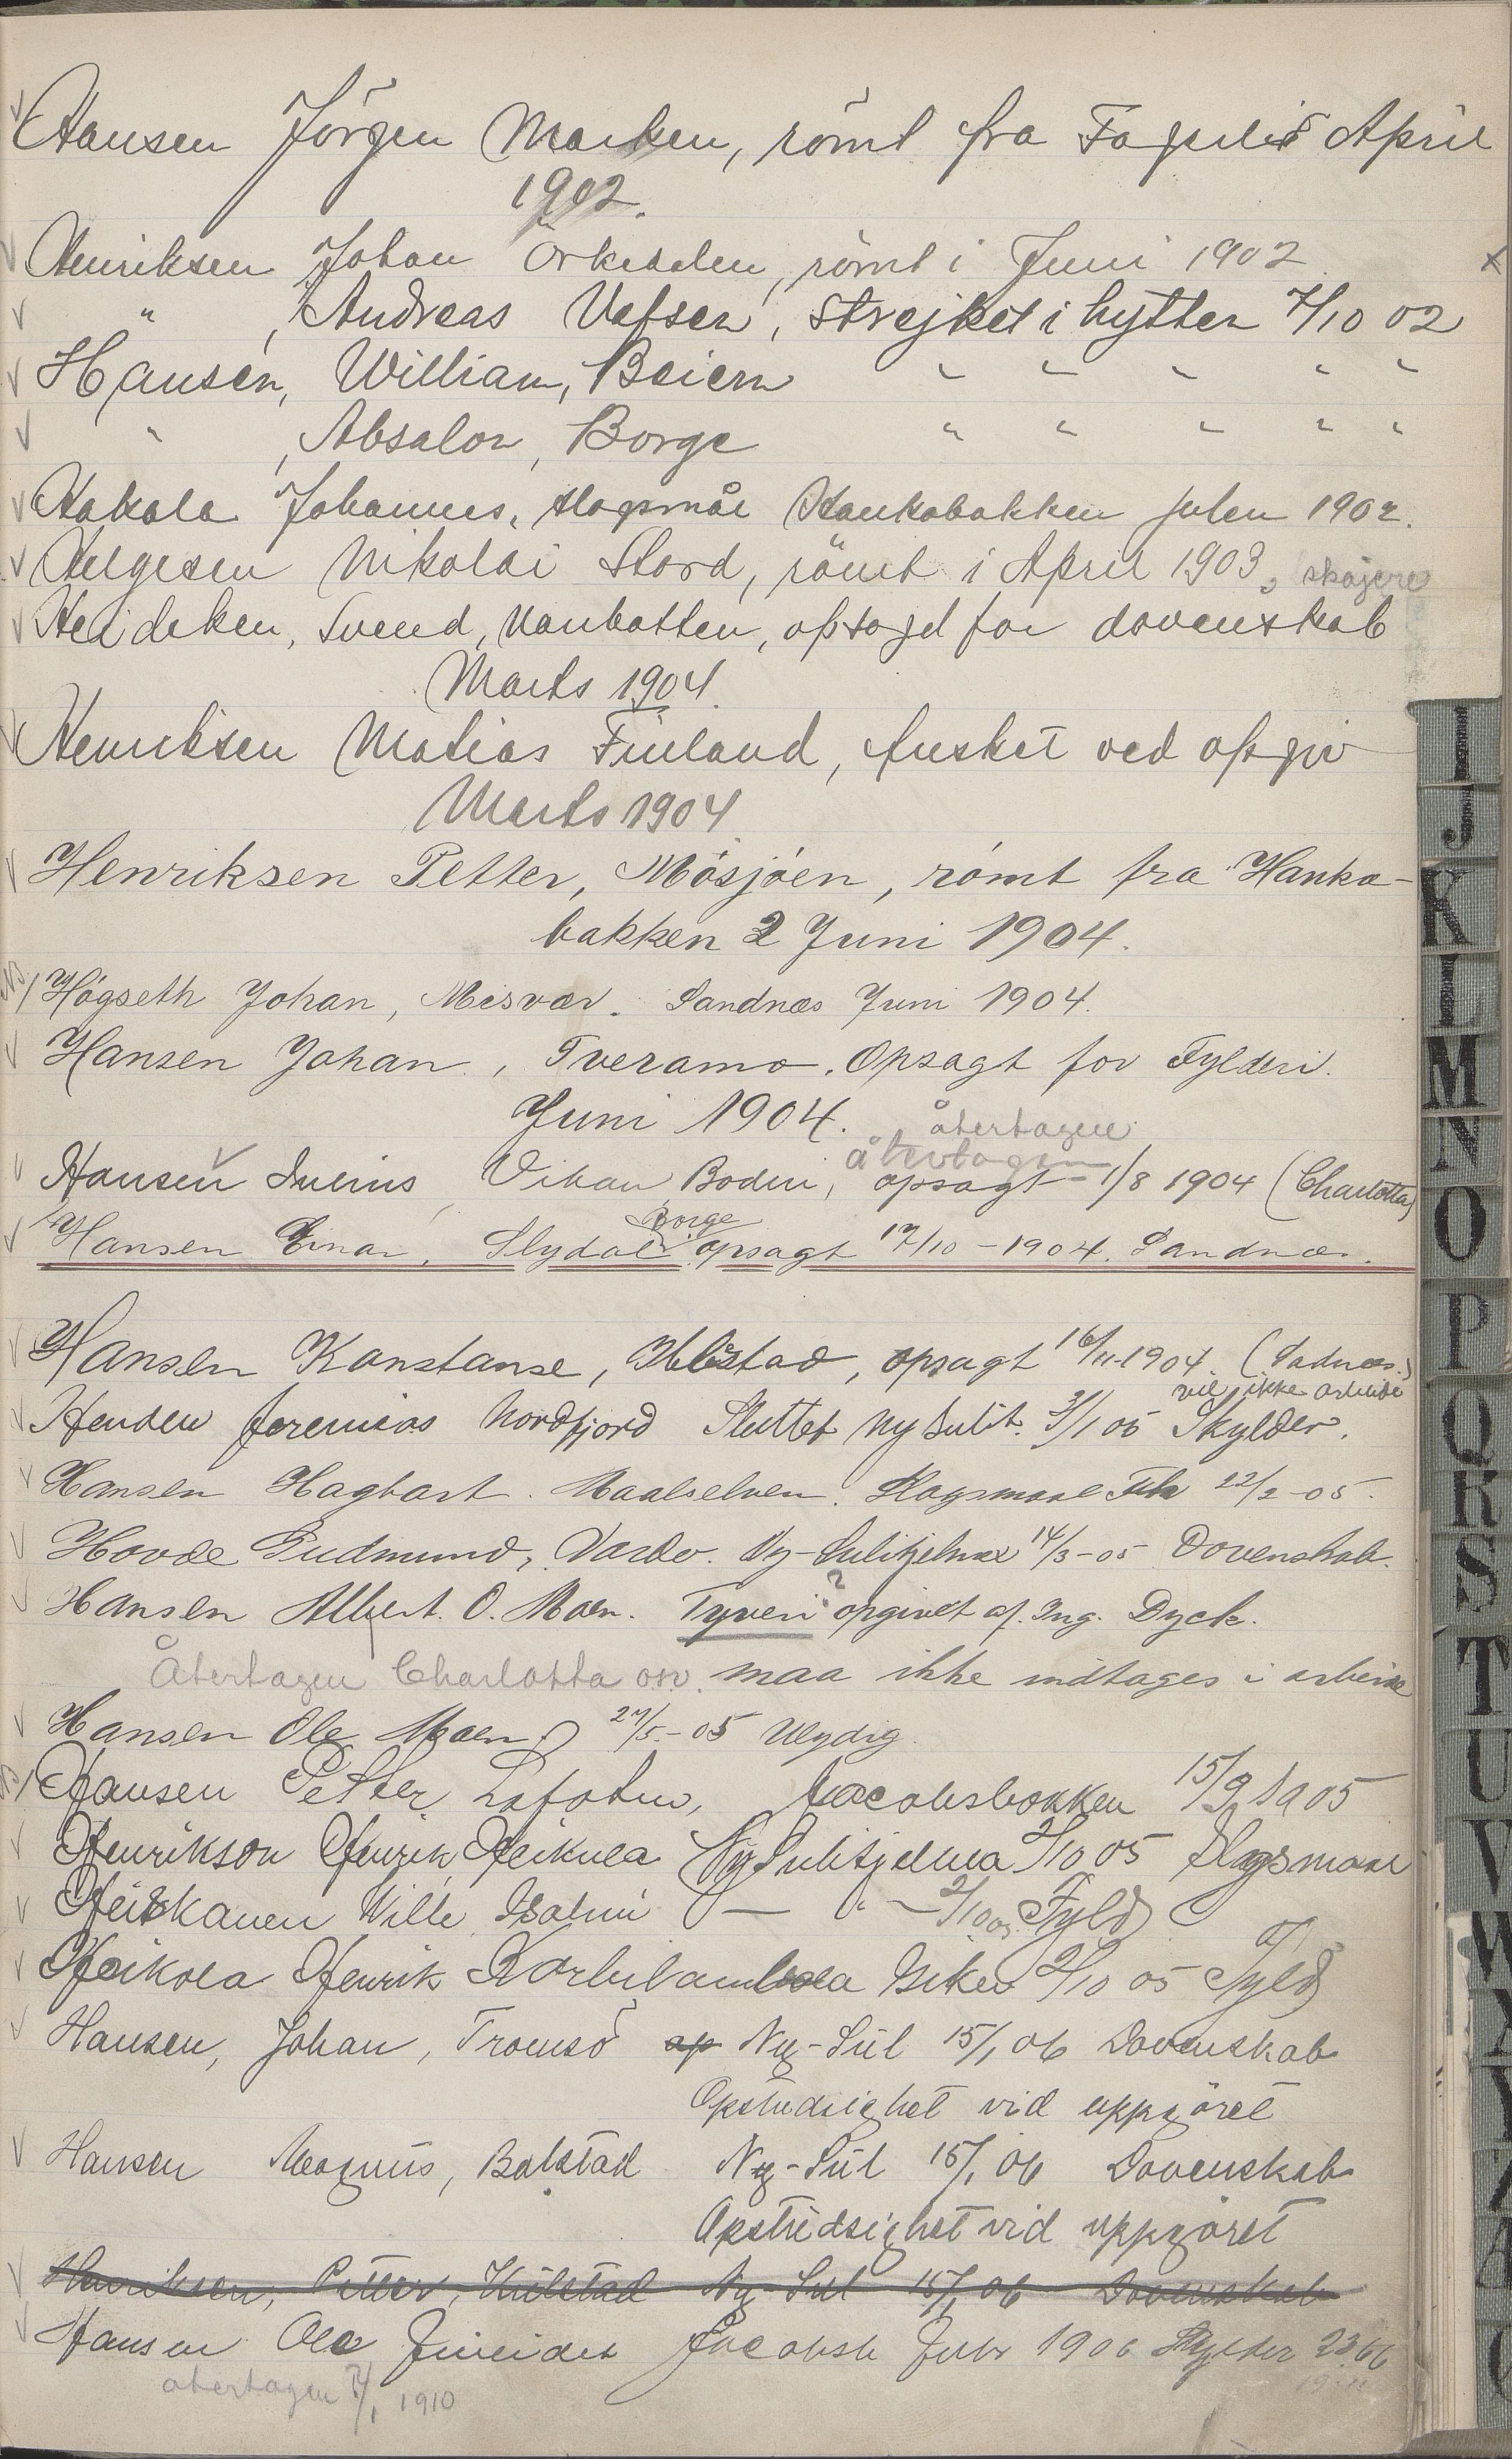 Hansen Jörgen Marken, römt fra Fagerli April
1902.
Henriksen Johan Örkedalen, römt i Juni 1902 x
" , Andreas Vefsen, strejket i hytten 7/10 02
Hansen, William, Beiern " " " " "
" , Absalon, Borge " " " " "
Hakala Johannes, slagsmål Hankabakken julen 1902.
Helgesen Nikolai Stord, römt i April 1903, skøjere
Heideken, Svend, Norrbotten, opsagd for dovenskab
Marts 1904.
Henriksen Matias Finland, fusket ved opgiv
Marts 1904
Henriksen Petter, Mösjöen, römt fra Hanka-
bakken 2 Juni 1904.
Högseth Johan, Misvær. Sandnæs Juni 1904.
Hansen Johan, Tveramo, Opsagt for Fylderi.
Juni 1904. återtagen
återtagen
Hansen Julius Vikan Bodin, opsagt 1/8 1904 (Charlotta)
Borge
Hansen Einar, Slydal opsagt 17/10-1904. Sandnæs.
Hansen Konstanse, opsagt 16/11-1904. (Sadnæs.)
vil ikke arbeide
Henden Jeremias Nordfjord Sluttet Ny Sulit. 3/1 05 Skylder.
Hansen Hagbart. Maalselven. Slagsmaal Feb 22/2-05.
Hovde Gudmund, Vardø. Ny-Sulitjelma 14/3-05 Dovenskab.
Hansen Albert. O. Moen. Tyveri? opgivet af. Ing. Dyck.
Återtagen Charlotta maa ikke indtages i arbeide
Hansen Ole Moen 27/5-05 Ulydig.
Hansen Petter Lofoten, Jacobsbakken 15/9 1905
Henrikson Henrik Heikula Ny Sulitjelma 2/10 05 Slagsmaal
Heiskanen Wille Isalmi — " — 2/10 05 Fyld
Heikola Henrik 2/10 05 Fyld
Hansen, Johan, Tromsö op Ny-Sul 15/1 06 Dovenskab
Opstudsighet vid uppgöret
Hansen Magnus, Balstad Ny-Sul 15/1 06 Dovenskab
Opstudsighet vid uppgöret
Henriksen, Petter, Kilstad Ny-Sul 15/1 06 Dovenskab
Hansen Ole Fineidet Jacobsb Febr 1906 Skylder 2366
återtagen 1910
I
J
K
L
M
N
O
P
Q
R
S
T
U
V
W